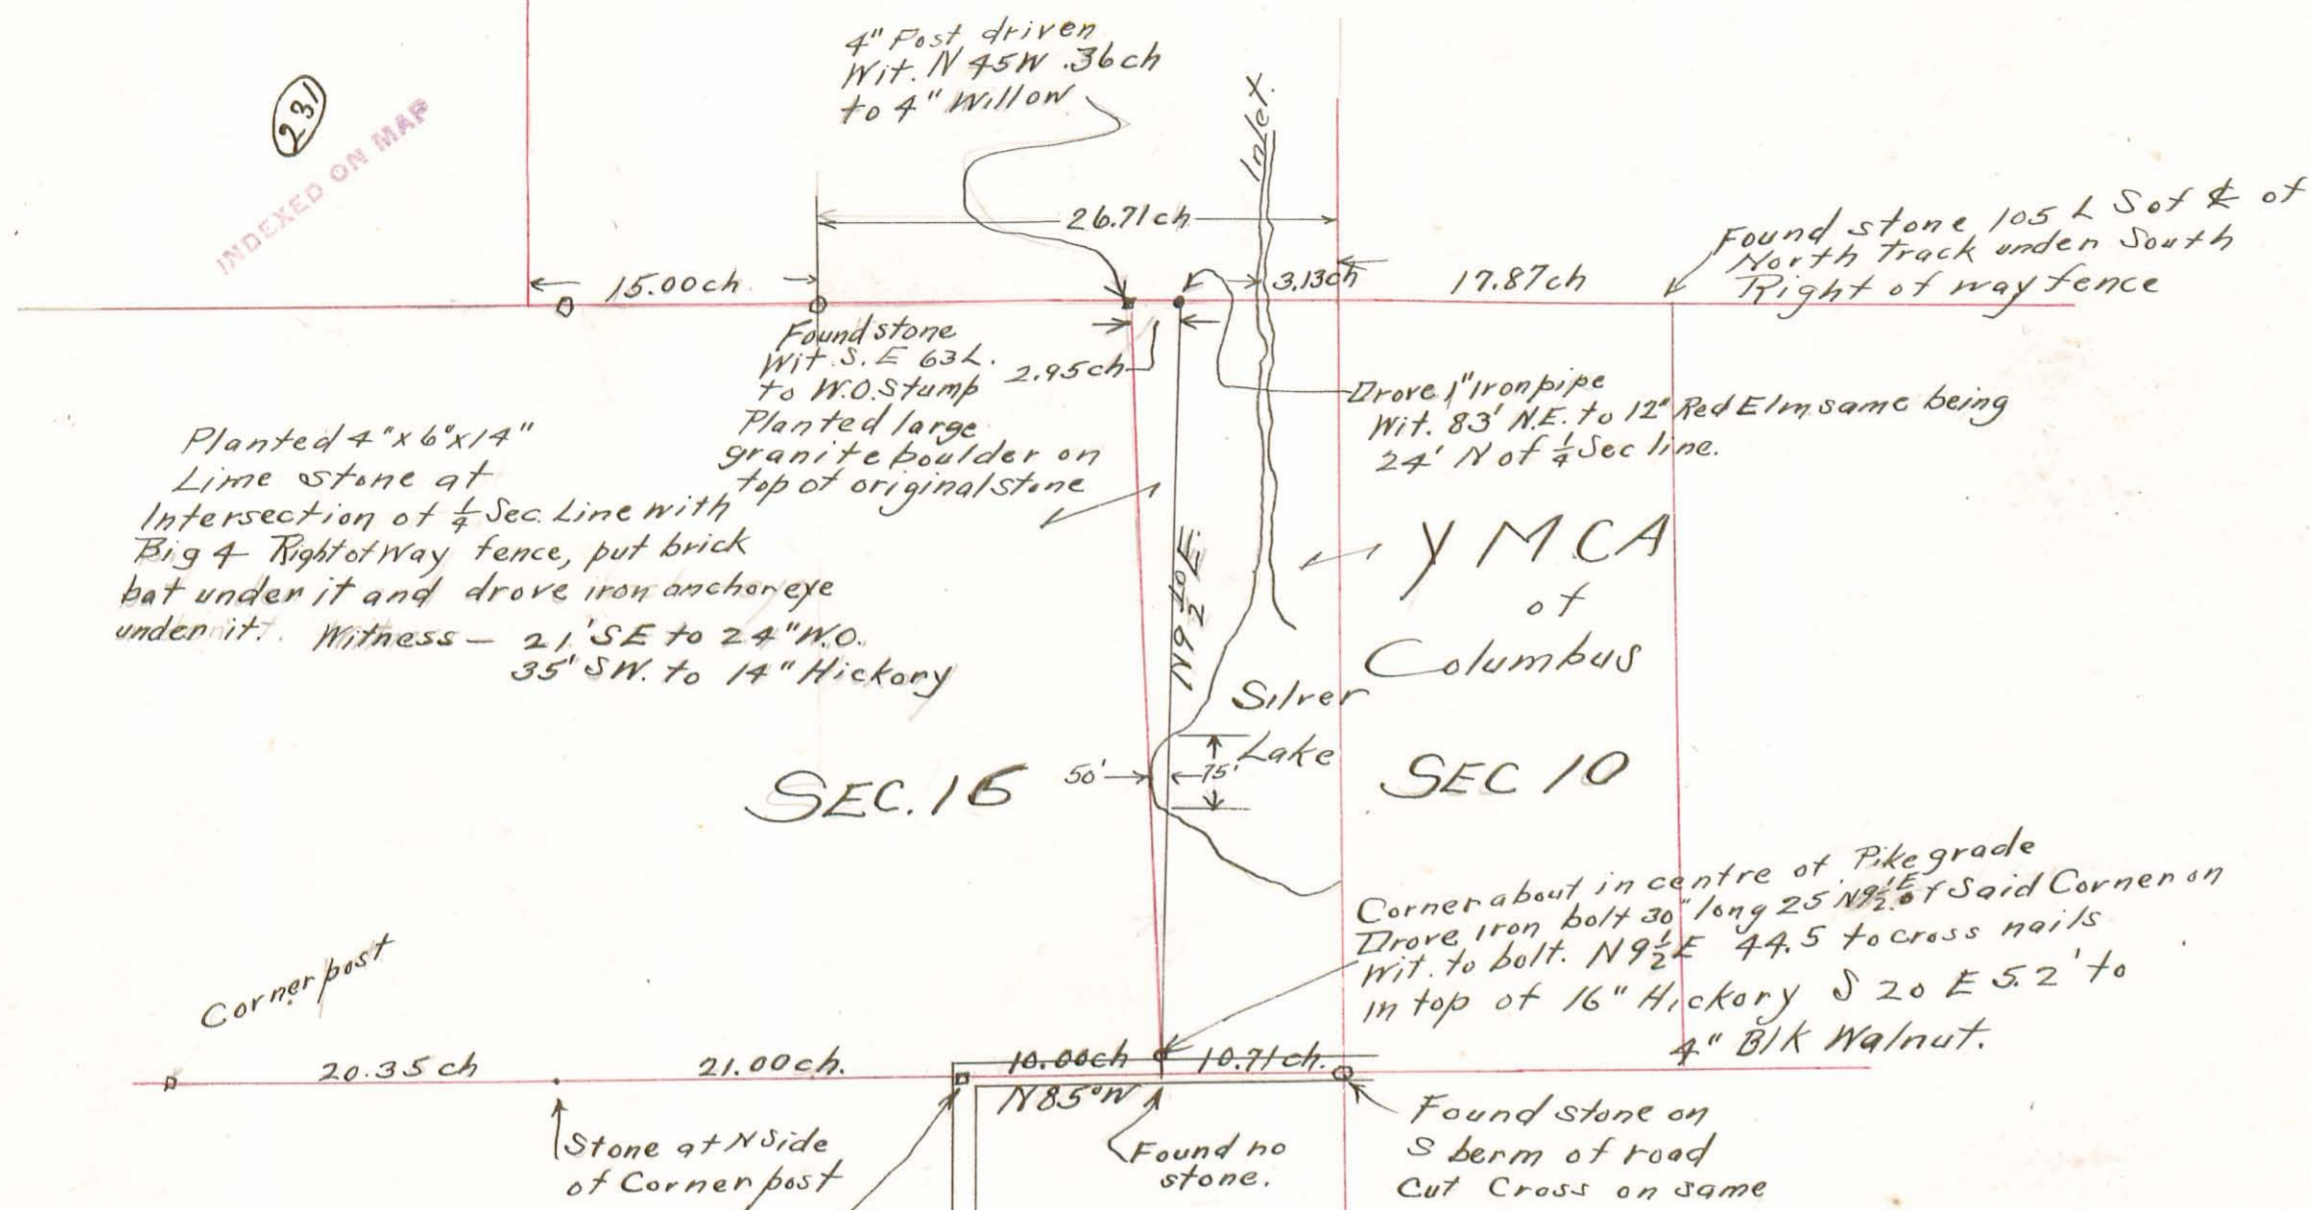 231
INDEXED ON MAP
4" Post driven
Wit. N 45W .36ch
to 4" Willow
Inlet.
26.71ch
15.00ch
3.13ch
17.87ch
Found stone 105 L S of ℄ of
North Track under South
Right of way fence
Found stone
Wit. S.E 63L.
to W.O. Stump
Planted large
granite boulder on
top of original stone
2.95ch
Drove 1" Iron pipe
Wit. 83' N.E. to 12" Red Elm same being
24' N of 1/4 Sec line.
Planted 4"x6"x14"
Lime stone at
Intersection of 1/4 Sec. Line with
Big 4 Right of Way fence, put brick
bat under it and drove iron anchor eye
under it. Witness - 21' SE to 24" W.O.
35' SW. to 14" Hickory
N9 1/2° E.
Y M C A
of
Columbus
Silver
Lake
50'
75'
SEC. 16
SEC 10
Corner about in centre of Pike grade
Drove iron bolt 30" long 25' N9 1/2 E of Said Corner on
Wit. to bolt. N9 1/2 E 44.5 to cross nails
in top of 16" Hickory S 20 E 5.2' to
4" Blk Walnut.
Corner post
20.35 ch
21.00 ch.
10.00ch
10.71ch.
N85°W
Stone at N Side
of Corner post
Found no
stone.
Found stone on
S berm of road
Cut Cross on same